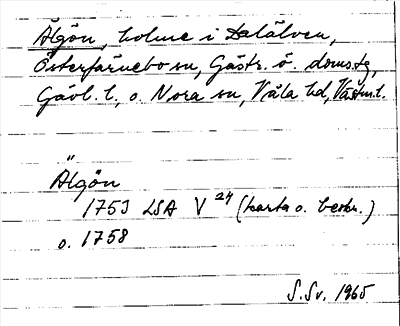 Älgön, holme i Dalälven,
Österfärnebo sn, Gästr. ö. doms.tg,
Gävl. l., o. Nora sn, Våla hd, Västm.l.
Älgön
1753 LSA V 24 (karta o. beskr.)
o. 1758
S.Sv. 1965